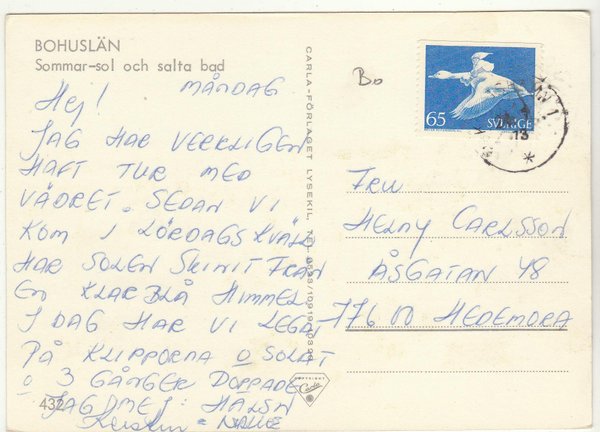 BOHUSLÄN
Sommar-sol och salta bad
MÅNDAG
Hej!
JAG HAR VERKLIGEN
HAFT TUR MED
VÄDRET. SEDAN VI
KOM I LÖRDAGS KVÄLL
HAR SOLEN SKINIT FRÅN
EN KLARBLÅ HIMMEL.
I DAG HAR VI LEGAT
PÅ KLIPPORNA O SOLAT
O 3 GÅNGER DOPPADE
JAG MEJ! HÄLSN
432
CARLA-FÖRLAGET LYSEKIL, TEL.
COPYRIGHT
Carla
Bo
65
SVERIGE
13
FRU
HELNY CARLSSON
ÅSGATAN 48
776 00 HEDEMORA